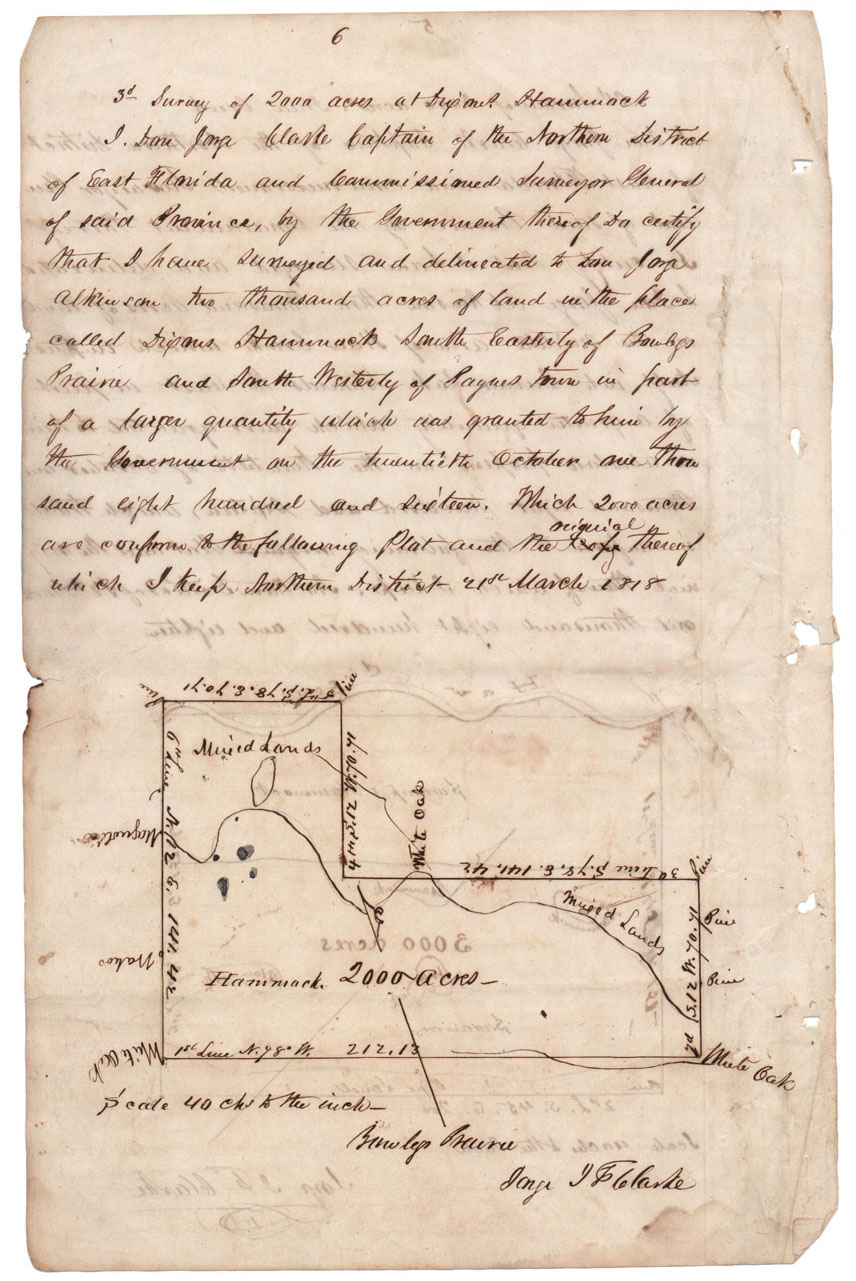 6
3d Survey of 2000 acres at Dixons Hammock
I. Don Jorge Clarke Captain of the Northern District
of East Florida and Commissioned Surveyor General
of said Province, by the Government thereof Do certify
that I have surveyed and delineated to Don Jorge
Atkinson two thousand acres of land in the place
called Dixons Hammock South Easterly of Bowlegs
Prairie and South Westerly of Paynes town in part
of a larger quantity which was granted to him by
the Government on the twentieth October one thou
sand eight hundred and sixteen. Which 2000 acres
are conform to the following Plat and the original thereof
which I keep. Northern District 21st March 1818
Pine
5th L. S. 78. E. 70.71
Pine
Mixed Lands
6th Line N. 12 E. 141.42
4th S. 12 W. 70.71
White Oak
Magnolia
3d Line S. 78. E. 141.42
Pine
Mixed Lands
Pine
2d S. 12 W. 70.71
Pine
Hammock 2000 acres
White Oak
1st Line N. 78° W. 212.13
White Oak
Scale 40 chs to the inch
Bowlegs Prairie
Jorge J F Clarke